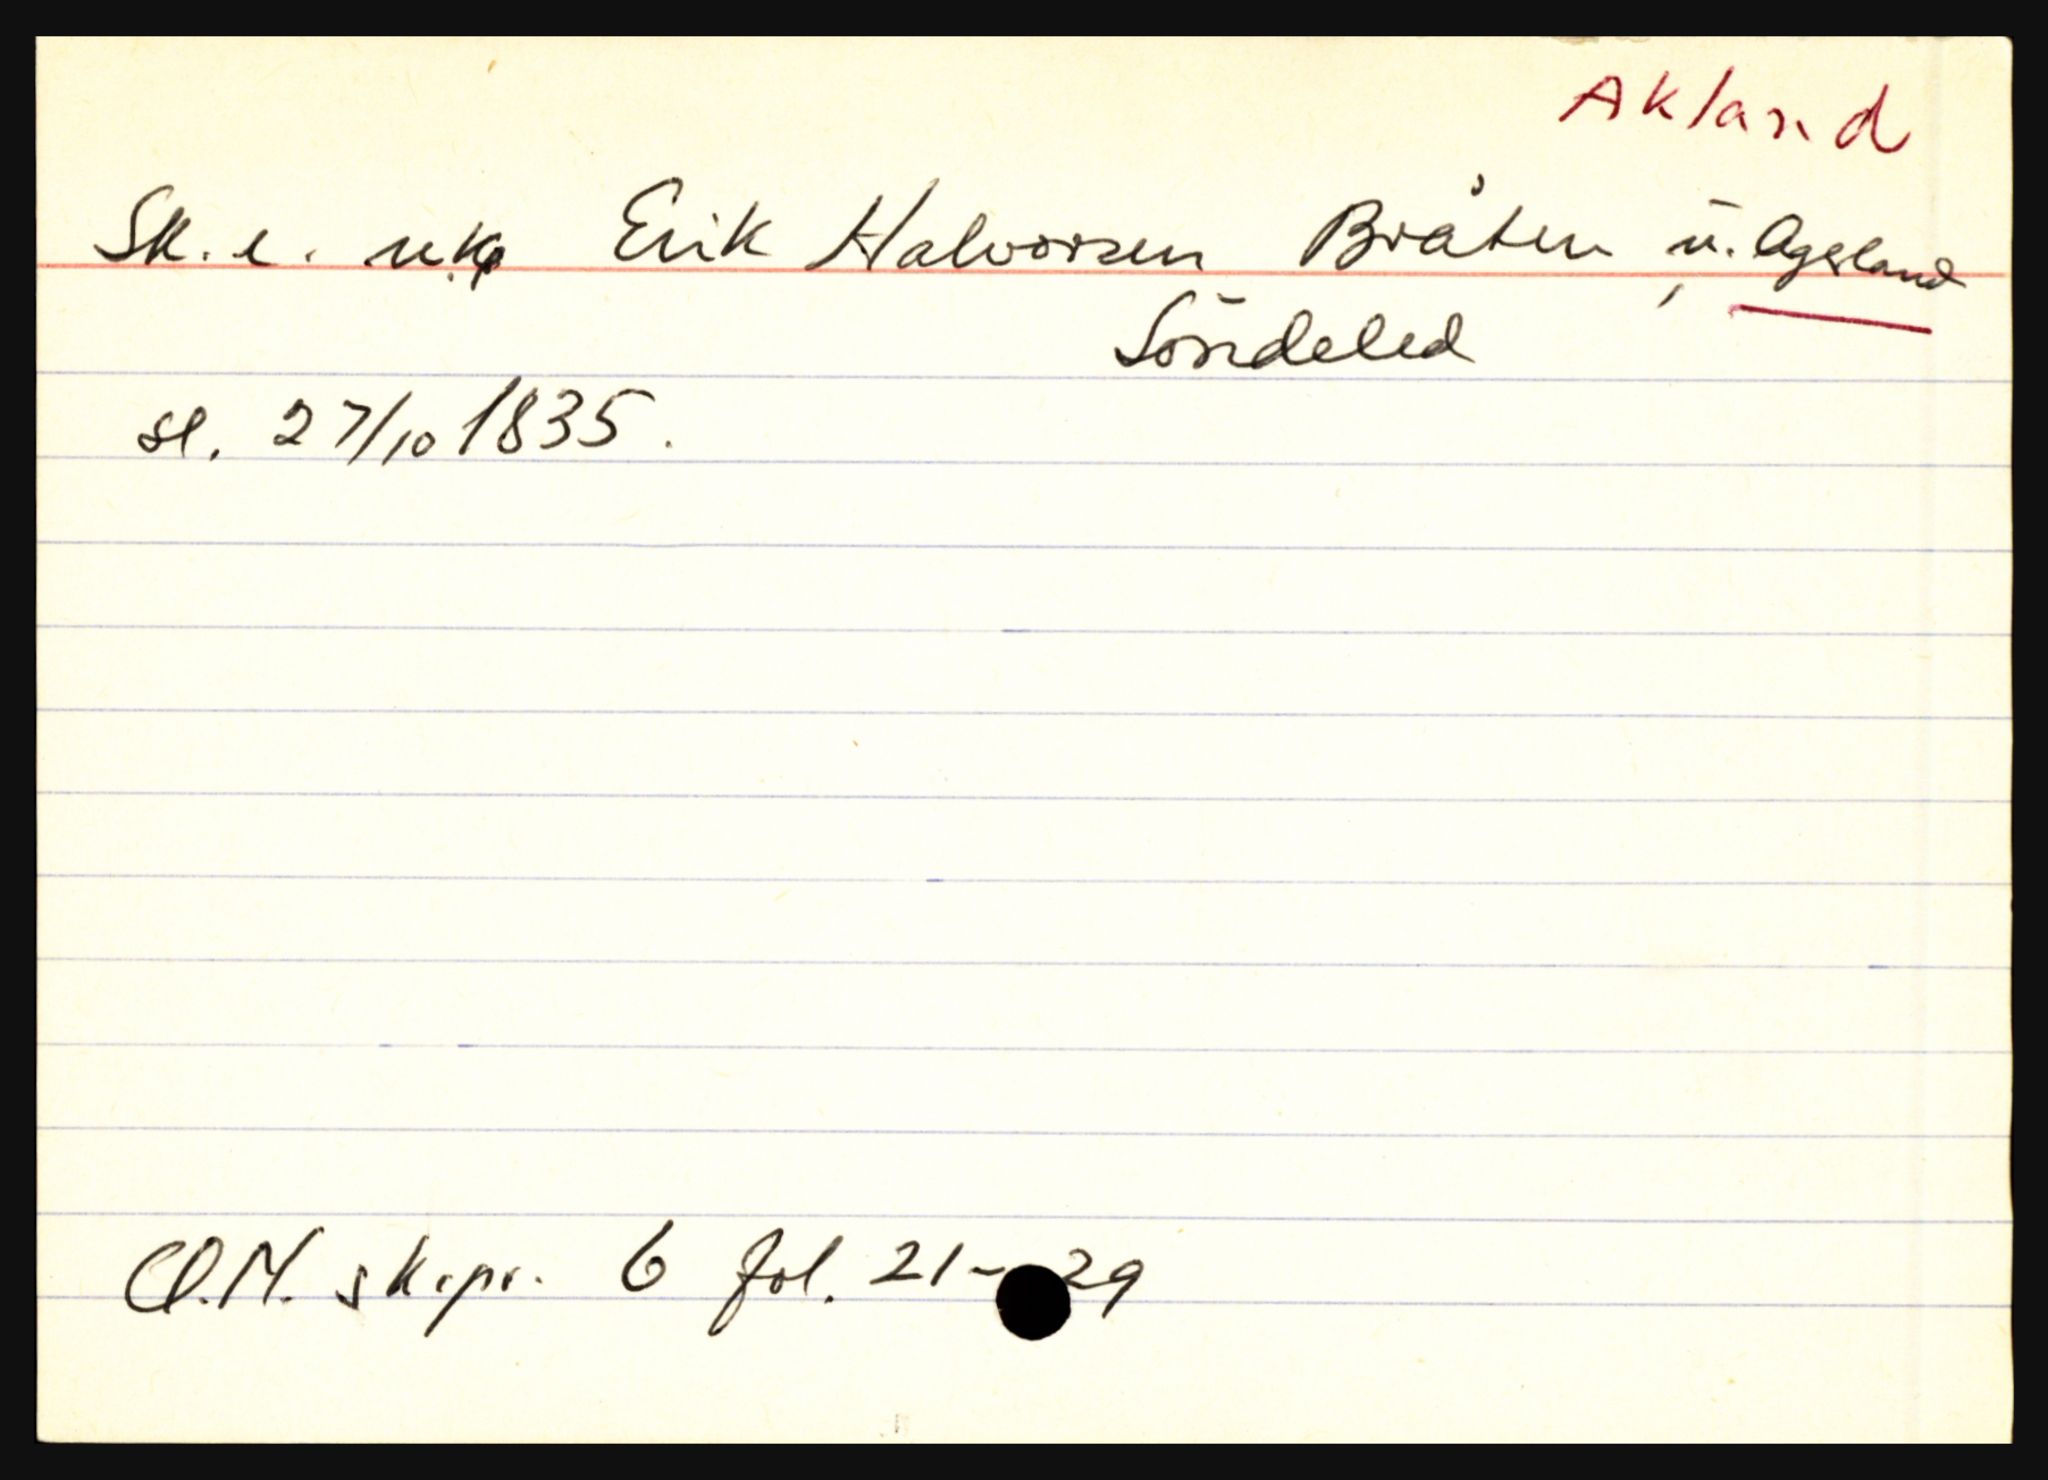 Akland
Sk. e. u.kp Erik Halvorsen Bråten, u. Ageland
Söndeled
sl. 27/10 1835.
Ø.N. sk.pr. 6 fol. 21-29